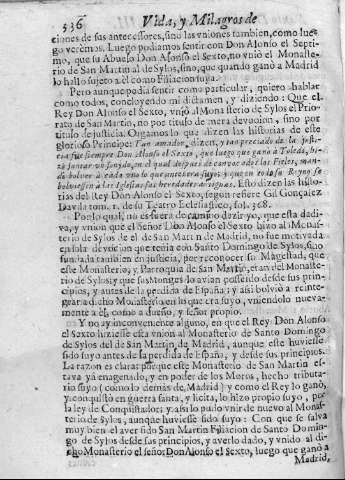 536 Vida, y Milagros de
ciones de sus antecessores, sino las vniones tambien, como lue-
go verèmos. Luego podiamos sentir con Don Alonso el Septi-
mo, que su Abuelo Don Alonso el Sexto, no vniò el Monaste-
rio de San Martin al de Sylos, sino, que quando ganò a Madrid
lo hallò sujeto a èl como Filiacion suya.
Pero aunque podia sentir como particular, quiero hablar
como todos, concluyendo mi dictamen, y diziendo: Que el
Rey Don Alonso el Sexto, vniò al Monasterio de Sylos el Prio-
rato de San Martin, no por titulo de mera devocion, sino por
titulo de justicia. Oygamos lo que dizen las historias de este
glorioso Principe: Fue amador, dizen, y tan preciado de la justi-
cia fue siempre Don Alonso el Sexto, que luego que ganò a Toledo, hi-
zo juntar un Senado, en el qual despues de cargos a dos los Fieles, man-
dò bolver à cada vno lo que antes era suyo; y que en todo su Reyno se
bolviessen à las Iglesias sus heredades antiguas. Esto dizen las his-
torias del Rey Don Alonso el Sexto, segun refiere Gil Gonçalez
Davila tom. 1. de su Teatro Eclesiastico, fol. 368.
Por lo qual, no es fuera de camino dezir yo, que esta dadi-
va, y vnion que el señor Don Alonso el Sexto hizo al Monas-
terio de Sylos de el de San Martin de Madrid, no fue motivada
de sola devocion que tenia con Santo Domingo de Sylos, sino
fundada tambien en justicia, por reconocer su Magestad, que
este Monasterio, y Parroquia de San Martin, eran del Monaste-
rio de Sylos; y que sus Monges lo avian posseìdo desde sus prin-
cipios, y antes de la perdida de España; y assi bolviò a reinte-
grar a dicho Monasterio en lo que era suyo, vniendolo nueva-
mente à èl, como a dueño, y señor propio.
Y no ay inconveniente alguno, en que el Rey Don Alonso
el Sexto hiziesse esta vnion al Monasterio de Santo Domingo
de Sylos del de San Martin de Madrid, aunque este huviesse
sido suyo antes de la perdida de España, y desde sus principios.
La razon es clara: porque este Monasterio de San Martin es-
tava yà enagenado, y en poder de los Moros, hecho tributa-
rio suyo (como lo demàs de Madrid) y como el Rey lo ganò,
y conquistò en guerra santa, y licita, lo hizo propio suyo, por
la ley de Conquistador; y assi lo pudo vnir de nuevo al Monas-
terio de Sylos, aunque huviesse sido suyo: Con que se salva
muy bien el aver sido San Martin Filiacion de Santo Domin-
go de Sylos desde sus principios, y averlo dado, y vnido al di-
cho Monasterio el señor Don Alonso el Sexto, luego que ganò a
Madrid,